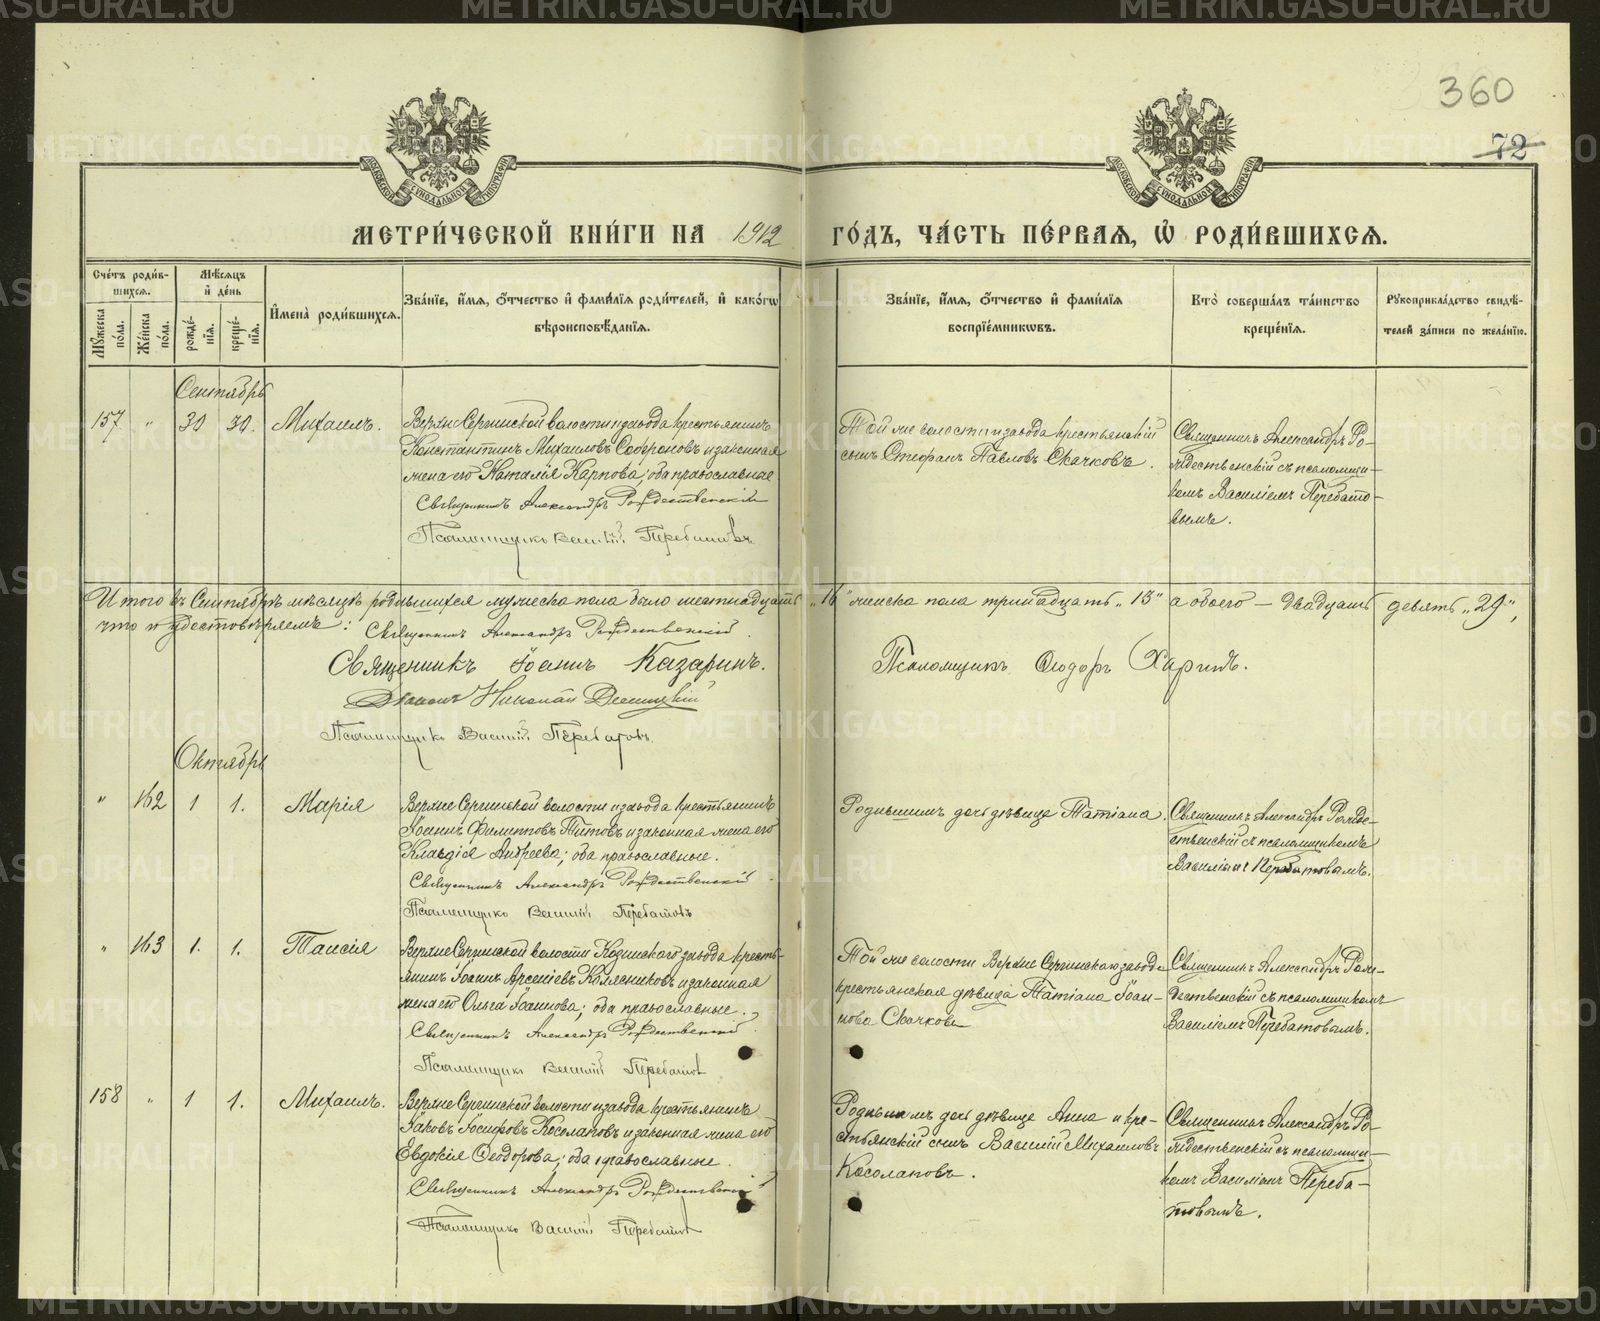 360
72
МОСКОВСКОЙ СѴНОДАЛЬНОЙ ТИПОГРАФІИ
МОСКОВСКОЙ СѴНОДАЛЬНОЙ ТИПОГРАФІИ
МЕТРИ́ЧЕСКОЙ КНИ́ГИ НА 1912 ГО́ДЪ, ЧА́СТЬ ПЕ́РВАЯ, Ѡ҆ РОДИ́ВШИХСЯ.
Сче́тъ роди́в-
шихся.
Мѣ́сяцъ
и҆ де́нь
Мꙋ́жеска по́ла.
Же́нска по́ла.
рожде́-
нїя.
креще́-
нїя.
И҆мена̀ роди́вшихся.
Зва́нїе, и҆́мя, ѻ҆́тчество и҆ фами́лїя роди́телей, и҆ како́гѡ
вѣроисповѣ́данїя.
Зва́нїе, и҆́мя, ѻ҆́тчество и҆ фами́лїя
воспрїе́мникѡвъ.
Кто̀ соверша́лъ та́инство
креще́нїя.
Рꙋкоприкла́дство свидѣ́-
телей за́писи по жела́нїю.
Сентябрь
157 " 30 30. Михаилъ.
Верхне Сергинской волости и завода крестьянинъ
Константинъ Михаиловъ Софроновъ и законная
жена его Наталія Карпова; оба православные
Священникъ Александръ Рождественскій
Псаломщикъ Василій Перебатовъ
Той же волости и завода крестьянскій
сынъ Стефанъ Павловъ Скачковъ.
Священникъ Александръ Ро-
ждественскій съ псаломщи-
комъ Василіемъ Перебато-
вымъ.
Итого въ Сентябрѣ мѣсяцѣ родившихся мужеска пола было шестнадцать „16" женска пола тринадцать „13" а обоего — двадцать девять „29",
что и удостовѣряемъ: Священникъ Александръ Рождественскій.
Священникъ Іоаннъ Казаринъ.
Псаломщикъ Ѳеодоръ Харинъ.
Діаконъ Николай
Псаломщикъ Василій Перебатовъ.
Октябрь
" 162 1 1. Марія
Верхне Сергинской волости и завода крестьянинъ
Іоаннъ Филипповъ Титовъ и законная жена его
Клавдія Андреева; оба православные.
Священникъ Александръ Рождественскій
Псаломщикъ Василій Перебатовъ
Родившимъ дочь дѣвица Татіана.
Священникъ Александръ Рожде-
ственскій съ псаломщикомъ
Василіемъ Перебатовымъ.
" 163 1. 1. Таисія
Верхне Сергинской волости Козинскаго завода кресть-
янинъ Іоаннъ Арсеніевъ Колесниковъ и законная
жена его Ольга Іоаннова; оба православные.
Священникъ Александръ Рождественскій
Псаломщикъ Василій Перебатовъ
Той же волости Верхне Сергинскаго завода
крестьянская дѣвица Татіана Іоан-
нова Скачкова
Священникъ Александръ Рож-
дественскій съ псаломщикомъ
Василіемъ Перебатовымъ.
158 " 1 1. Михаилъ.
Верхне Сергинской волости и завода крестьянинъ
Іаковъ Іосифовъ Косолаповъ и законная жена его
Евдокія Ѳеодорова; оба православные.
Священникъ Александръ Рождественскій
Псаломщикъ Василій Перебатовъ
Родившимъ дочь дѣвица Анна и кре-
стьянскій сынъ Василій Михаиловъ
Косолаповъ.
Священникъ Александръ Ро-
ждественскій съ псаломщи-
комъ Василіемъ Переба-
товымъ.
METRIKI.GASO-URAL.RU